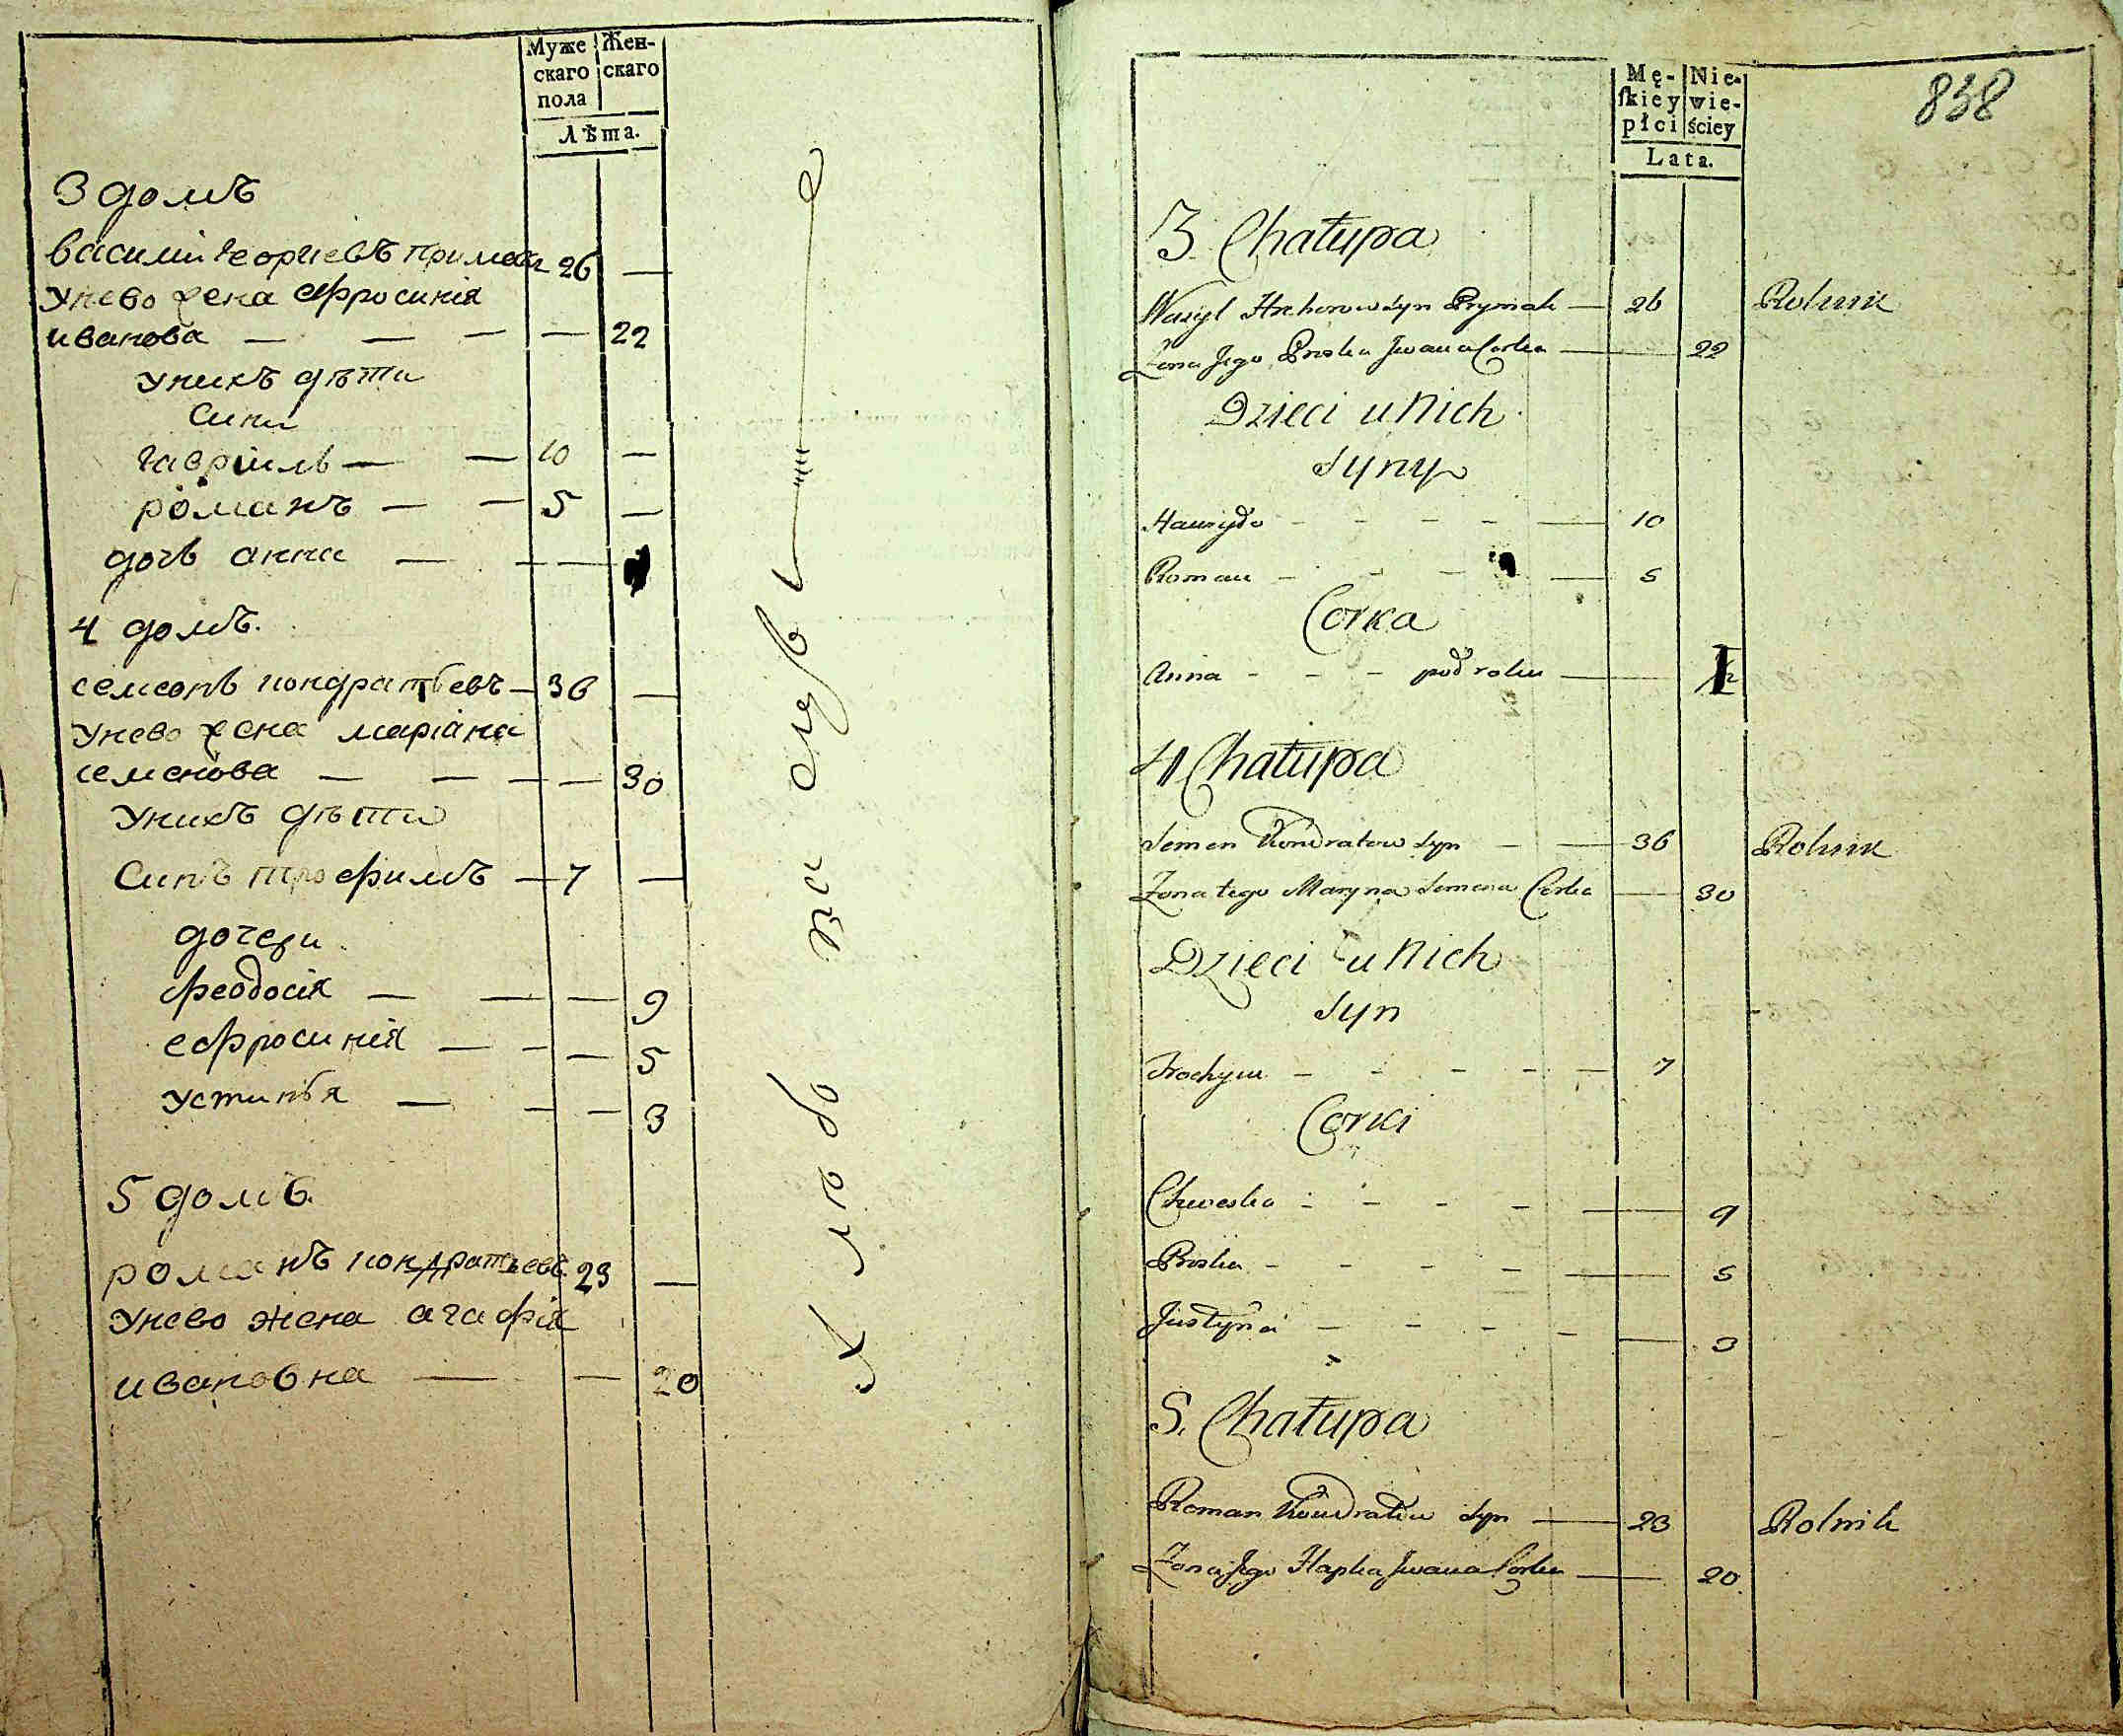 Муже
скаго
пола
Жен-
скаго
Лѣта.
3 домъ
василий георгиевъ примакъ 26 —
унево жена ефросинія
иванова — — — — 22
унихъ дѣти
сини
гавріилъ — — 10 —
романъ — — 5 —
дочь анна — — —
4 домъ.
семенъ кондратьевъ — 36 —
унево жена маріана
семенова — — — — 30
унихъ дѣти
синъ трофимъ — 7 —
дочери
феодосія — — — 9
ефросинія — — — 5
устинья — — — 3
5 домъ.
романъ кондратьевъ 23 —
унево жена агафія
ивановна — — 20
Mę-
ſkiey
płci
Nie-
wie-
ściey
Lata.
838
3 Chałupa
Wasyl Hrehorow Syn Prymak — 26 Rolnik
Zona Jego Pryska Jwana Corka — 22
Dzieci u Nich
Syny
Hawryło - - - - — 10
Roman - - - - — 5
Corka
Anna - - - pod roku —
4 Chałupa
Semen Kondratow Syn - — 36 Rolnik
Zona tego Maryna Semena Corka — 30
Dzieci u Nich
Syn
Trochym - - - - - 7
Corki
Chweska - - - - — 9
Pryska - - - - — 5
Justyna - - - - — 3
5. Chałupa
Roman Kondratow Syn — 23 Rolnik
Zona Jego Hapka Jwana Corka — 20